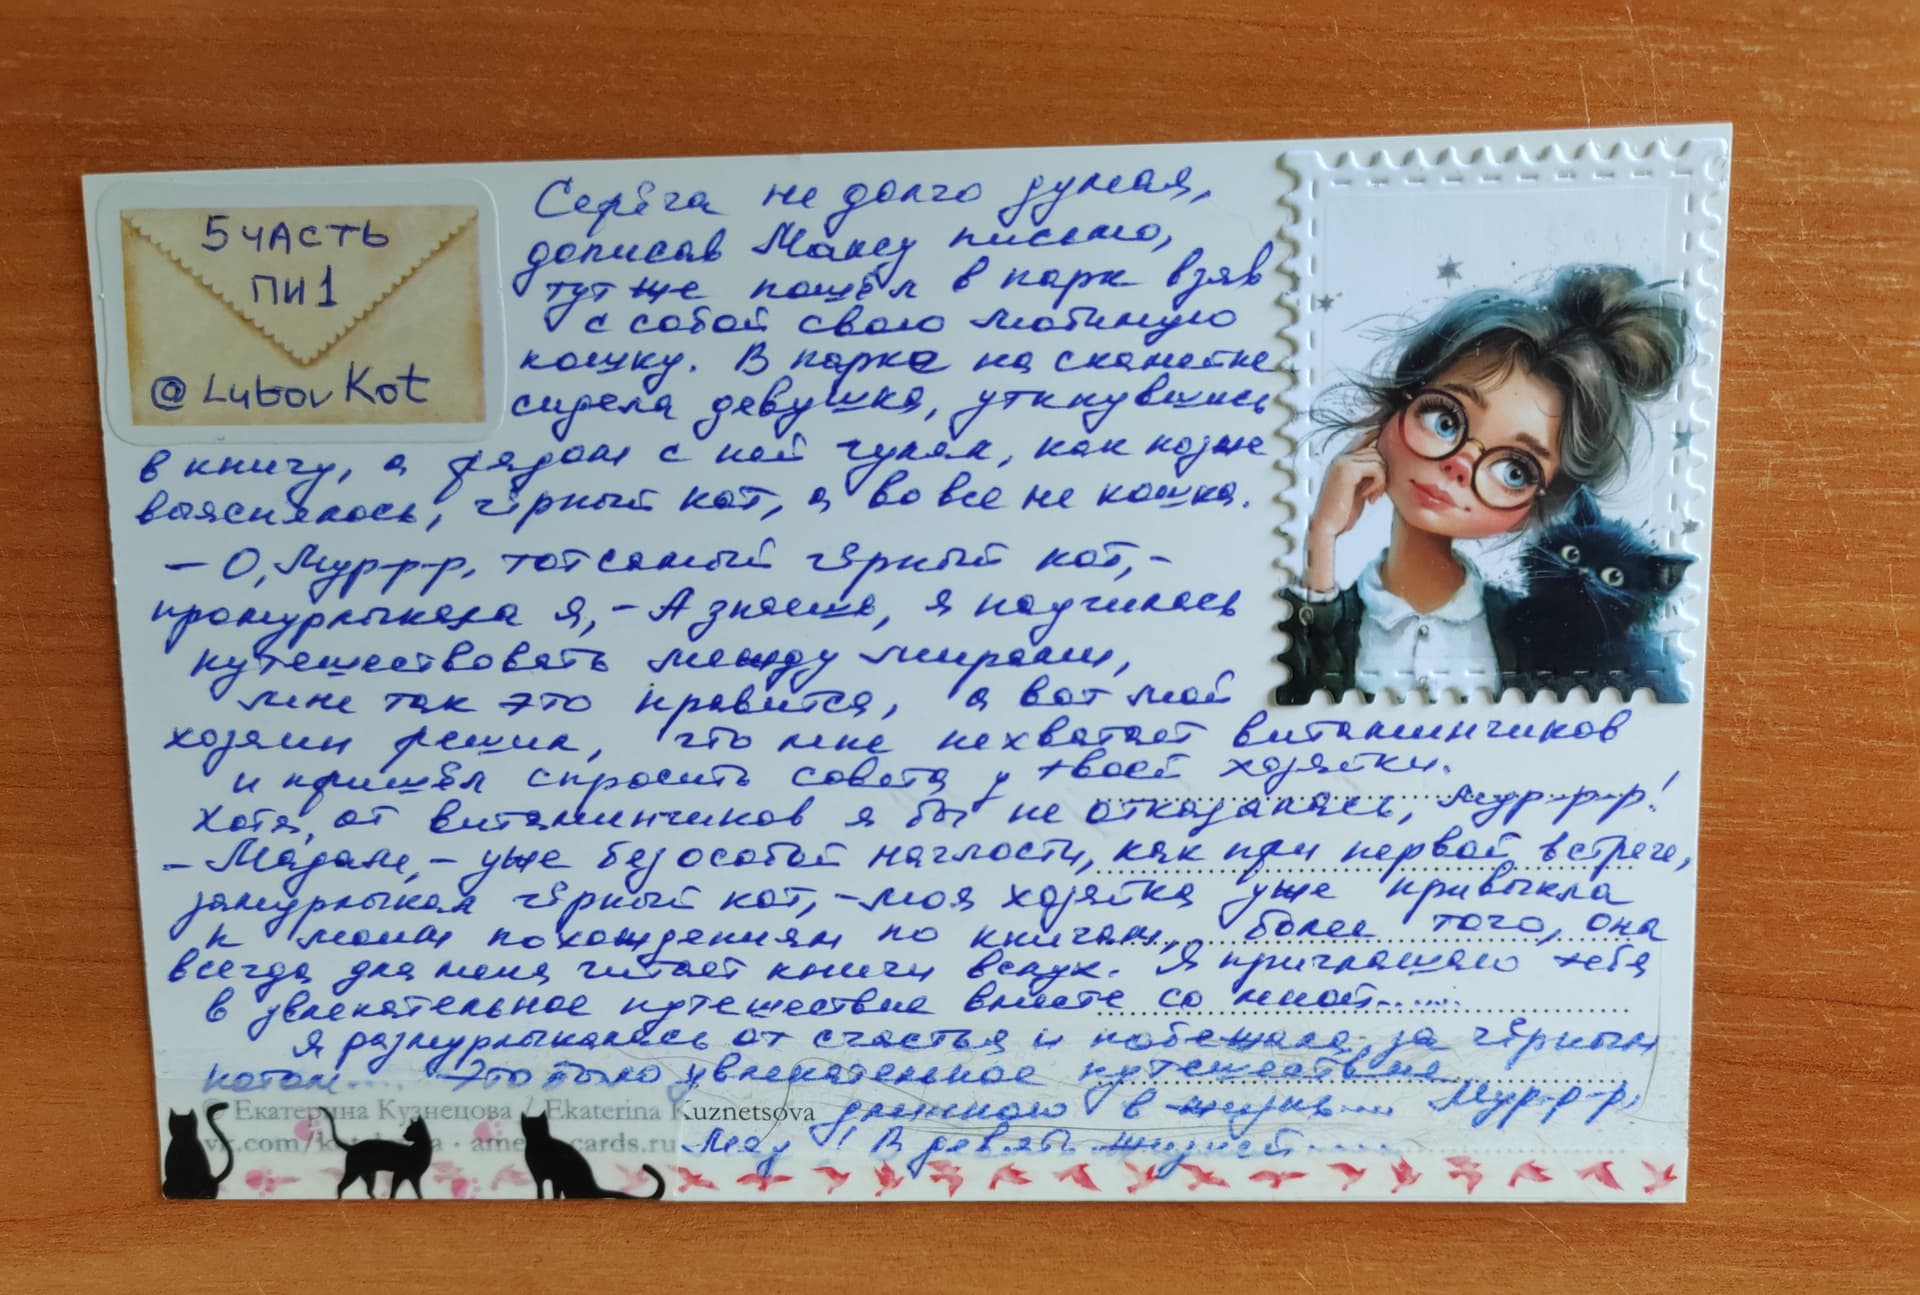 5 ЧАСТЬ
ПИ1
@ Lubov Kot
Серёга не долго думая,
дописав Максу письмо,
тут же пошёл в парк взяв
с собой свою любимую
кошку. В парке на скамейке
сидела девушка, уткнувшись
в книгу, а рядом с ней гулял, как позже
выяснялось, чёрный кот, а вовсе не кошка.
— О, Мур-р-р, тот самый чёрный кот, –
промурлыкала я, – А знаешь, я научилась
путешествовать между мирами,
мне так это нравится, а вот мой
хозяин решил, что мне нехватает витаминчиков
и пришёл спросить совета у твоей хозяйки.
Хотя, от витаминчиков я бы не отказалась, Мур-р-р!
– Мадам, – уже без особой наглости, как при первой встрече,
замурлыкал чёрный кот, – моя хозяйка уже привыкла
к моим похождениям по книгам, более того, она
всегда для меня читает книги вслух. Я приглашаю тебя
в увлекательное путешествие вместе со мной......
Я размурлыкалась от счастья и побежала за чёрным
котом.... Это было увлекательное путешествие
длинною в жизнь.... Мур-р-р,
Мяу! В девять жизней.....
© Екатерина Кузнецова / Ekaterina Kuznetsova
cards.ru